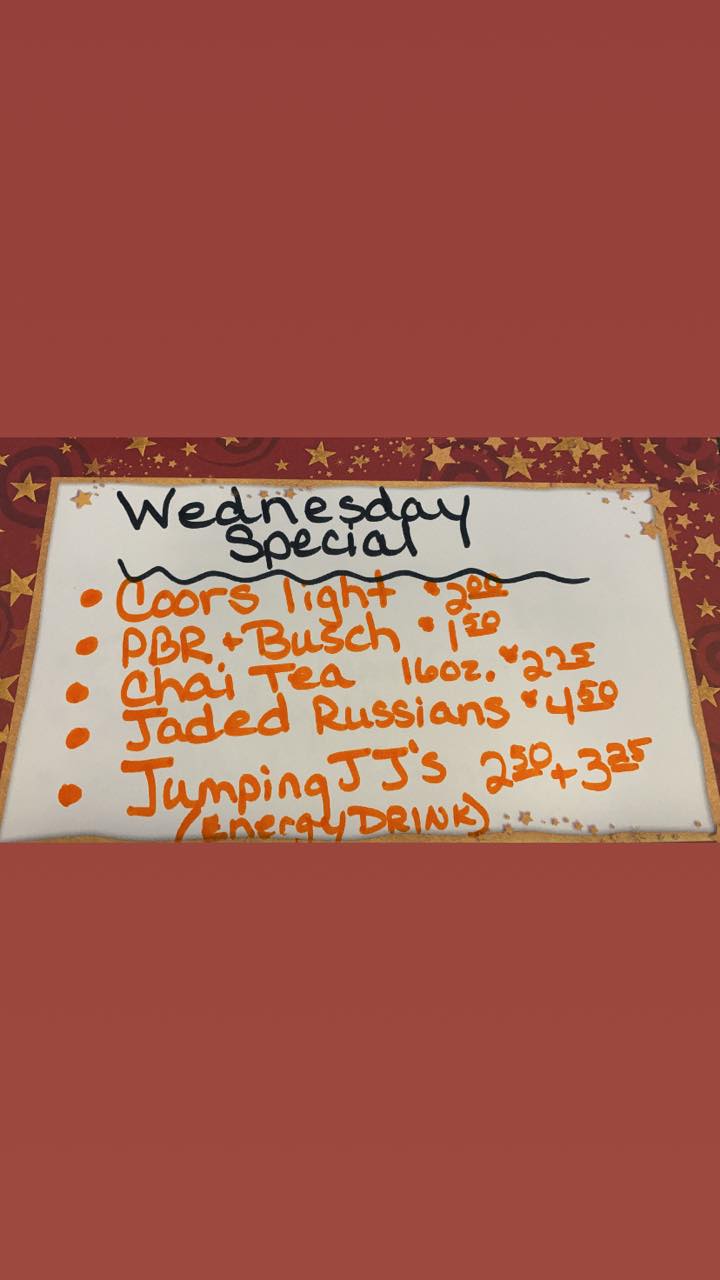 Wednesday
Special
• Coors light • 2.00
• PBR + Busch • 1.50
• Chai Tea 16oz. • 2.25
• Jaded Russians • 4.50
• Jumping JJ's 2.50 + 3.25
(Energy DRINK)